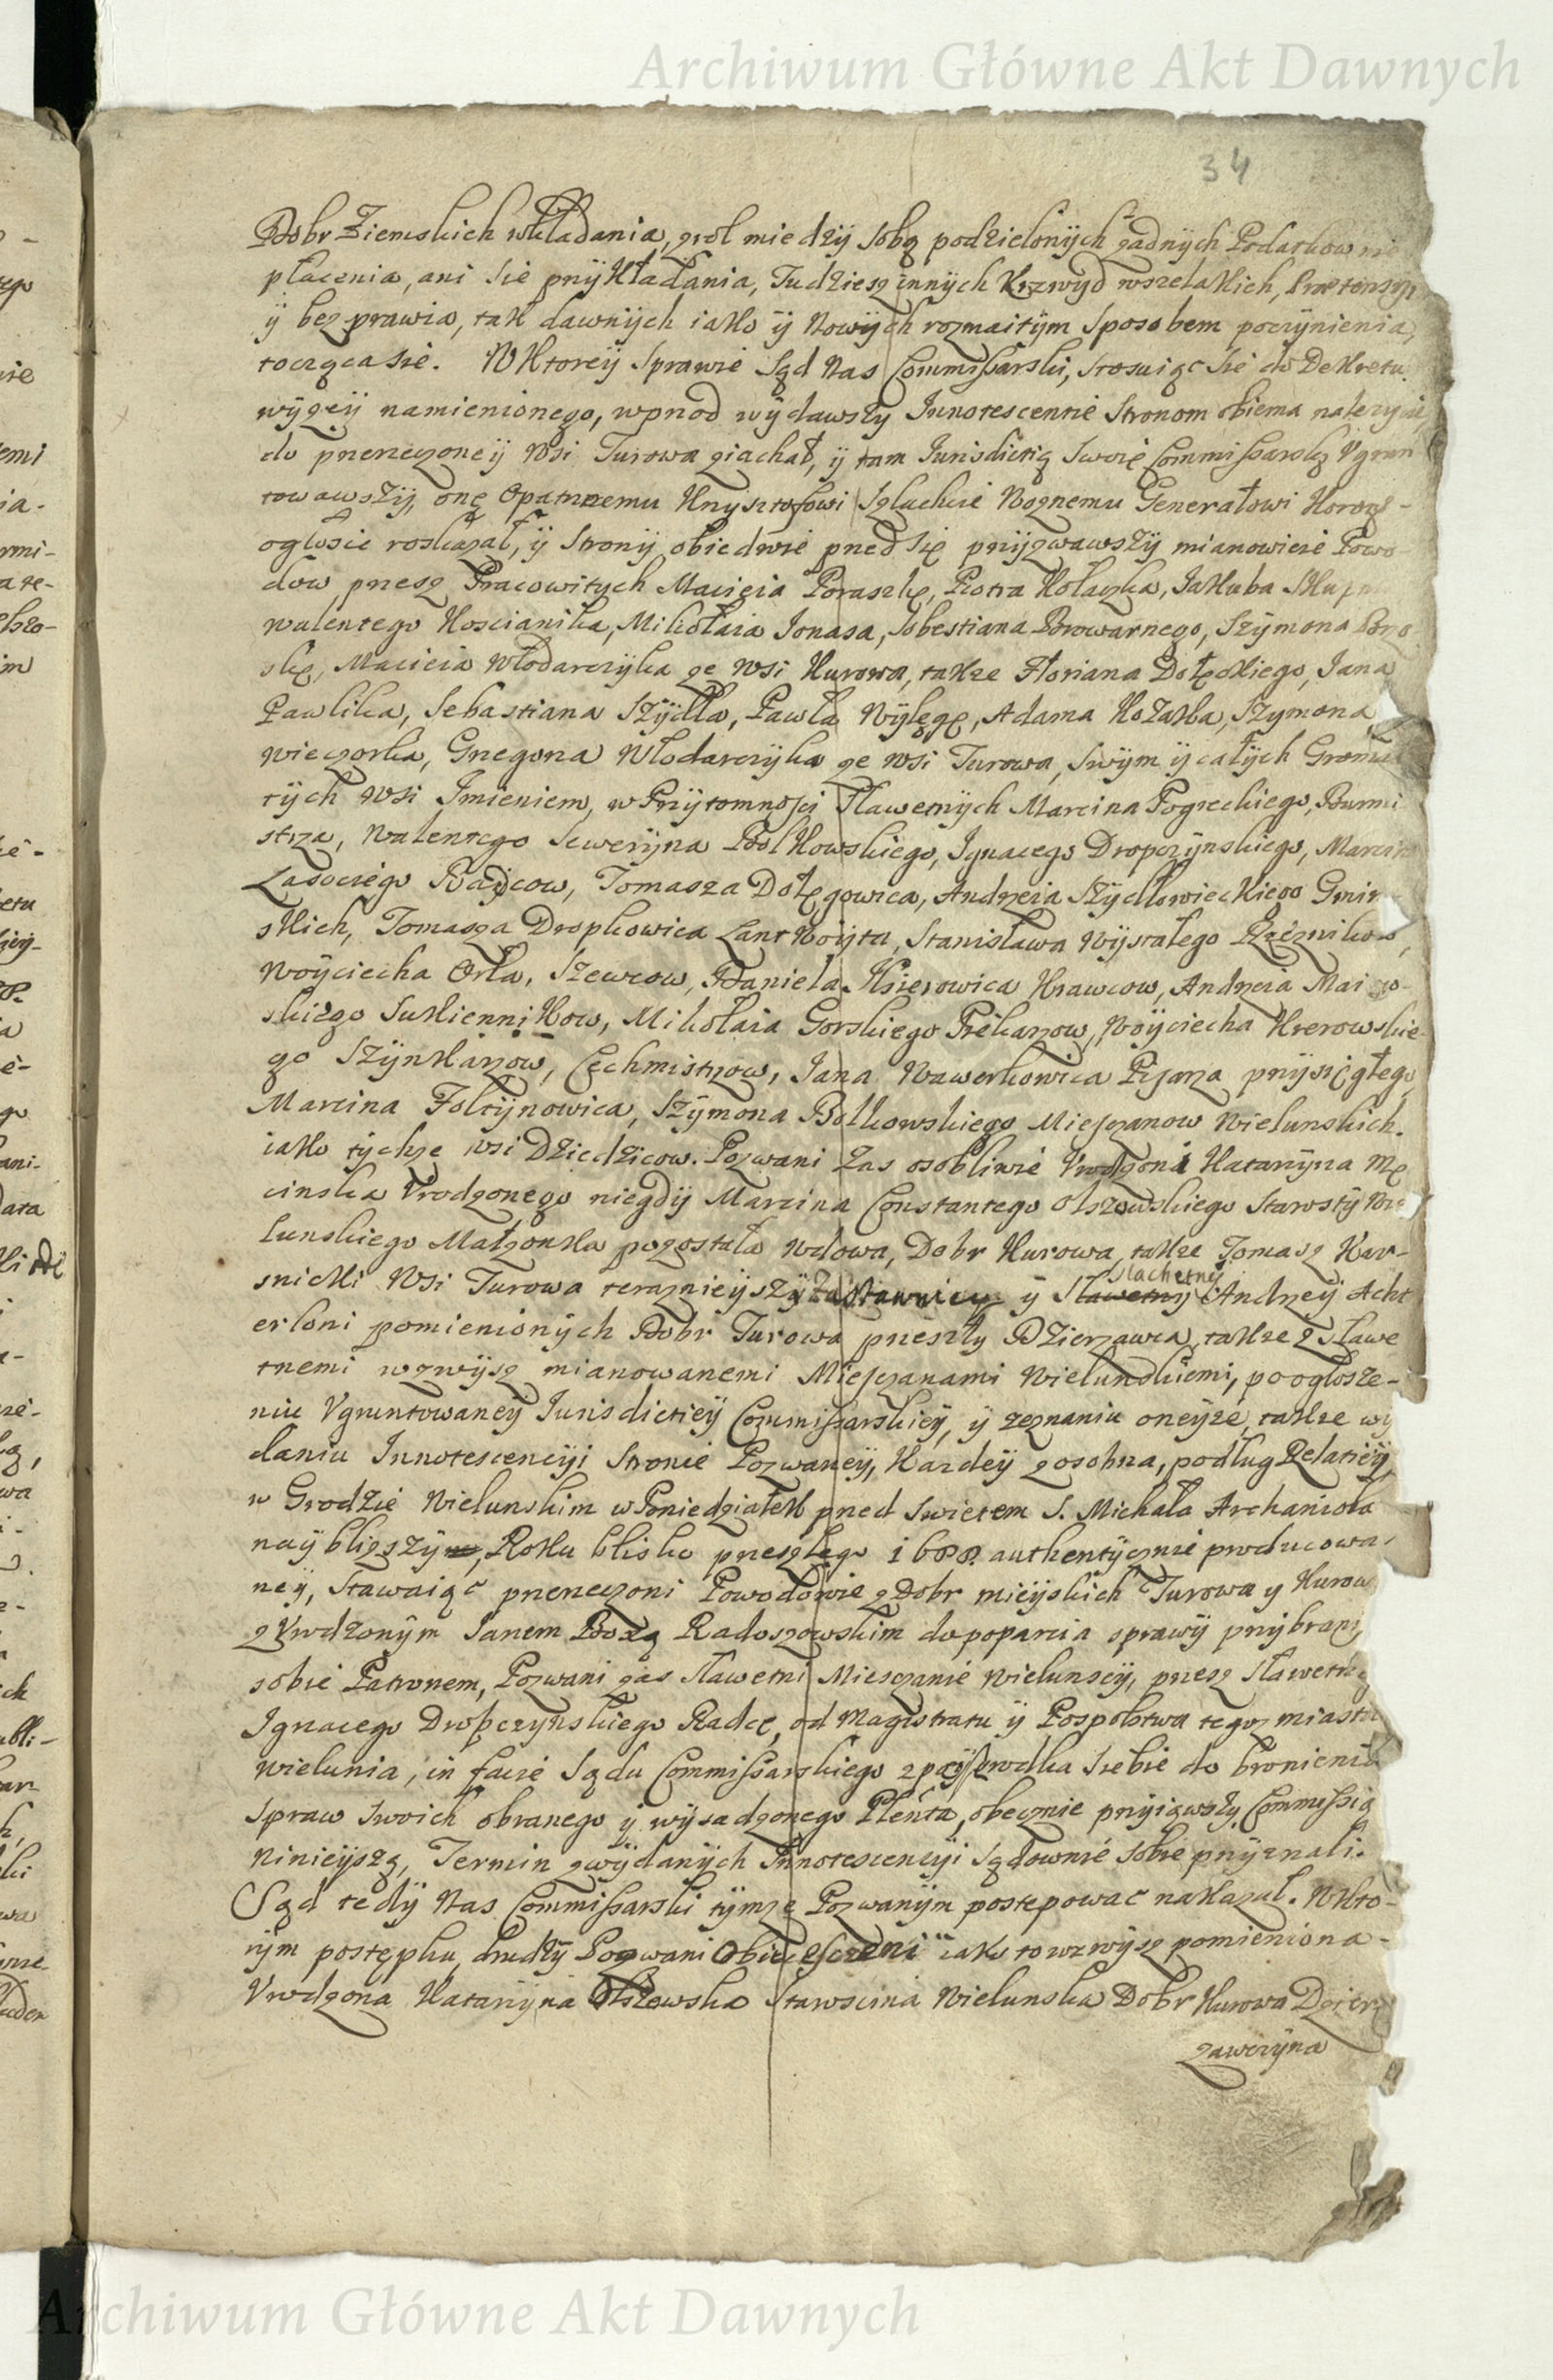 Archiwum Główne Akt Dawnych
34
Dobr Ziemskich wkładania, zrol miedzÿ sobą podzielonÿch żadnÿch Podatkow nie
płacenia, ani sie prziÿkładania, Tudziesz innÿch Krzwÿd wszelakich, Praetensÿi
ÿ bezprawia, tak dawnÿch iako ÿ Nowÿch rozmaitÿm sposobem poczÿnienia,
toczącasie. W Ktoreÿ Sprawie Sąd Nas Commissarski, stosuiąc sie do Dekretu
wÿzeÿ namienionego, wprzod wÿdawszÿ Innotescentie stronom obiema należycie,
do przerzeczoneÿ Wsi Turowa ziachał, ÿ tam Iurisdictią swoię Commissarską Vgrun
towawszÿ, onę Opatrznemu Krzysztofowi Woznemu Generałowi Koron-
ogłosic roskazał, ÿ stronÿ obiedwie przed się prziÿzwawszÿ mianowicie Powo
dow przesz Pracowitych Macieia Poraszkę, Piotra Kołaczka, Iakuba
walentego Koscianika, Mikołaia Ionasa, Sobestiana Browarnego, Szÿmona
Macieia Włodarczÿka ze Wsi Kurowa, także Floriana Dołęckiego, Iana
Pawlika, Sebastiana Szÿdła, Pawła Wÿlęgę, Adama Kozaka, Szymona
wieczorka, Grzegorza Włodarczÿka ze wsi Turowa, swÿm ÿ całÿch Gromad
tÿch wsi Imieniem, w Prziÿtomności Sławetnÿch Marcina Pogreckiego, Burmi
strza, Walentego Sewerÿna Polkowskiego, Ignacego Dropczÿnskiego, Marcina
Lasockiego Raÿcow, Tomasza Dołęgowica, Andrzeia Szÿdłowieckiego Gmin
skich, Tomasza Dropkowica Lantwoÿta, Stanisława Wÿstałego Rzeznikow,
Woÿciecha Orła, Szewcow, Daniela Ksierowica Krawcow, Andrzeia
skiego Sukiennikow, Mikołaia Gorskiego Piekarzow, Woÿciecha Kierowskie
go Szÿnkarzow, Cechmistrzow, Iana Wawerkowica Pisarza prziÿsięgłego
Marcina Foltÿnowica, Szÿmona Bolkowskiego Miesczanow Wielunskich.
iako tÿchze wsi Dziedzicow. Pozwani zas osobliwie Vrodzoni Katarzÿna Mę
cinska Vrodzonego niegdÿ Marcina Constantego Olszowskiego Starostÿ Wie
lunskiego Małzonka pozostała wdowa, Dobr Kurowa, także Tomasz Kar-
snicki Wsi Turowa teraznieÿszÿ Zastawnicy ÿ Sławetny Slachetnÿ Andrzeÿ Acht
erloni pomienionÿch Dobr Turowa przeszłÿ Dzierzawca, także z Sławe
tnemi wzwÿsz mianowanemi Miesczanami Wielunskiemi, po ogłosze-
niu Vgruntowaneÿ Iurisdictieÿ Commissarskieÿ, ÿ zeznaniu oneÿze, także wÿ
daniu Innotescencÿi stronie Pozwaneÿ, Kazdeÿ zosobna, podług Relatieÿ,
w Grodzie Wielunskim w Poniedziałek przed Swietem S. Michała Archanioła
naÿblizszÿm, Roku blisko przeszłego 1688. authentÿcznie producowa-
neÿ, stawaiąc przerzeczoni Powodowie z Dobr mieÿskich Turowa y Kurow
z Vrodzonÿm Ianem Bozą Radoszowskim do poparcia sprawÿ prziÿbranÿ
sobie Patronem, Pozwani zas Sławetni Miesczanie Wielunscÿ, przesz Sławetneg
Ignacego Dropczynskiego Radcę, od Magistratu ÿ Pospolstwa tegoz miasta
wielunia, in facie Sądu Commissarskiego z poÿsrodka siebie do bronienia
spraw swoich obranego ÿ wÿsadzonego Plenta, obecznie prziÿiąwszÿ Commissią
ninieÿszą, Termin zwÿdanÿch Innotescencÿi sądownie sobie prziÿznali.
Sąd tedÿ Nas Commissarski tÿmze Pozwanÿm postepowac nakazał. W Kto-
rÿm postępku, drudzÿ Pozwani iako to wzwÿsz pomieniona-
Vrodzona Katarzÿna Olszowska Starościna Wielunska Dobr Kurowa Dzier
zawczÿna
Archiwum Główne Akt Dawnych